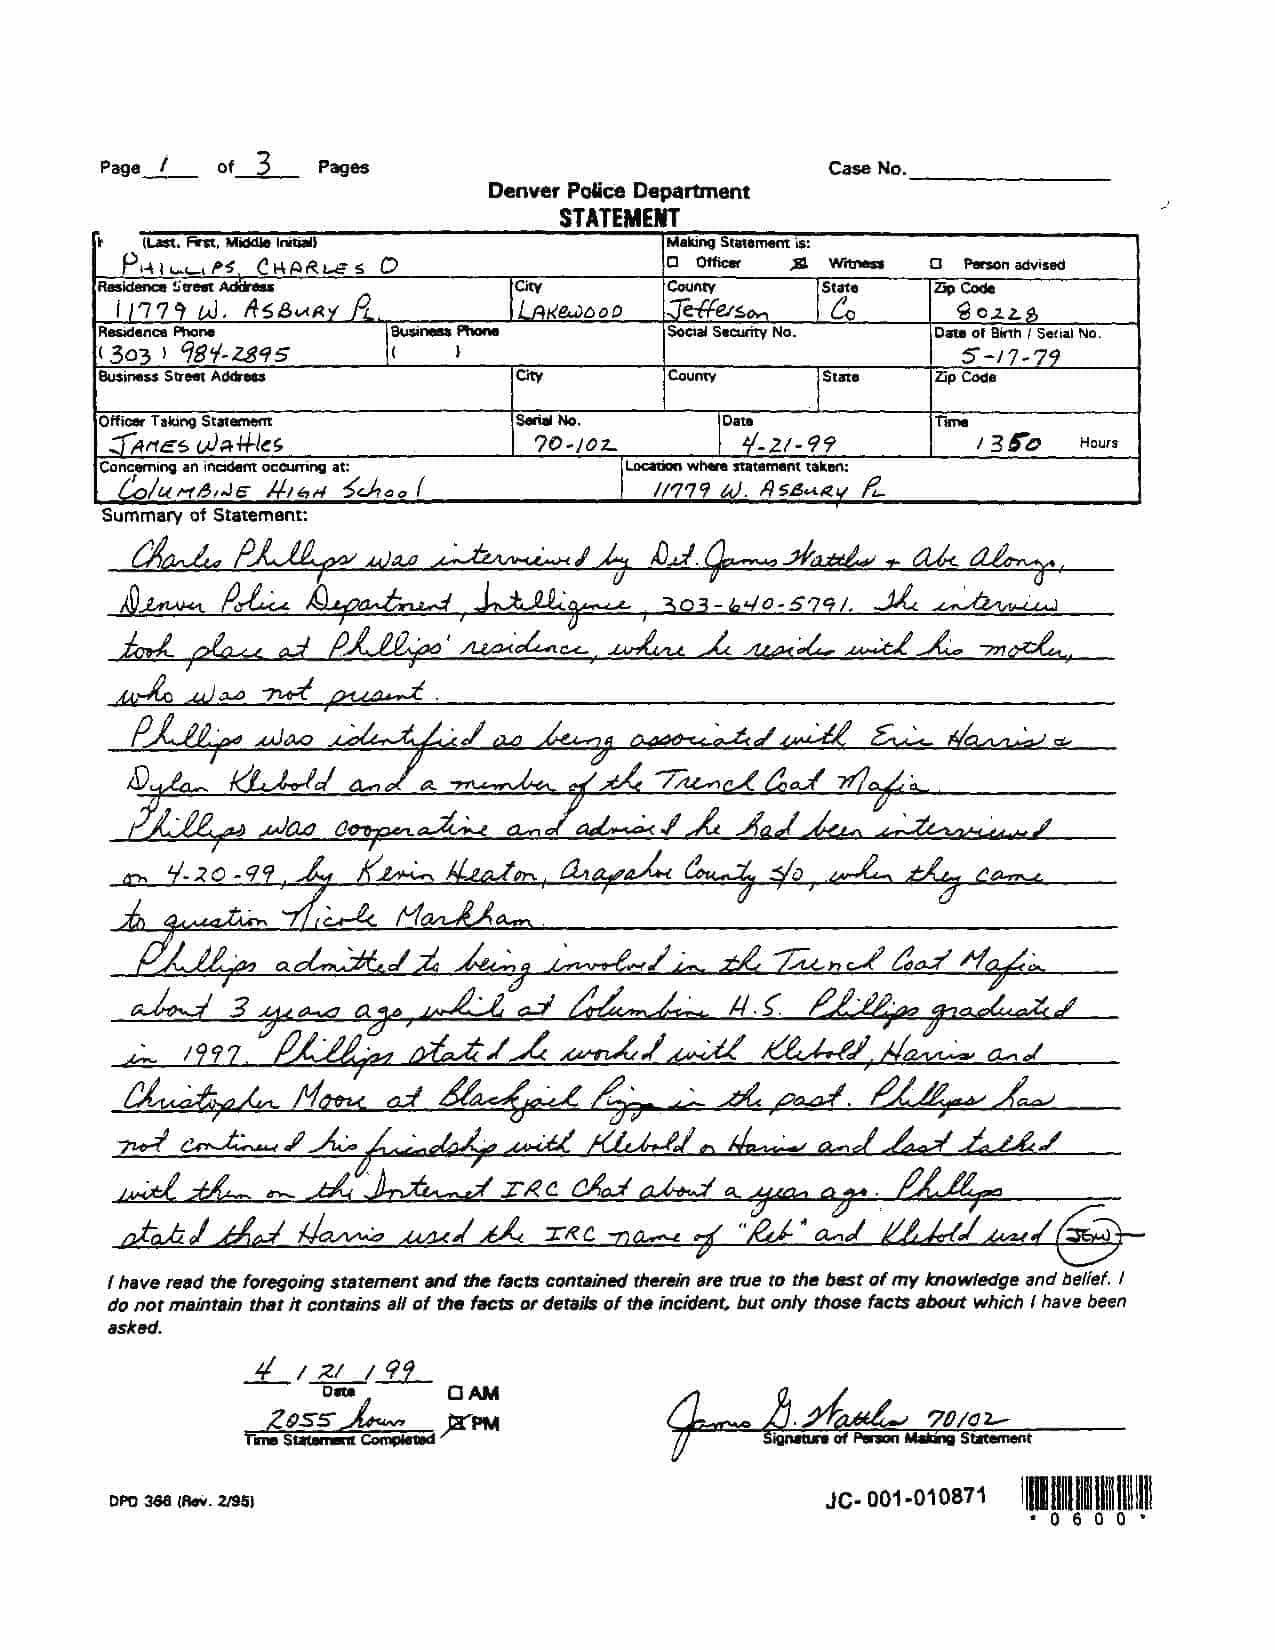 Page 1 of 3 Pages Case No.
Denver Police Department
STATEMENT
(Last, First, Middle Initial) Making Statement is:
PHILLIPS, CHARLES O ☐ Officer ☒ Witness ☐ Person advised
Residence Street Address City County State Zip Code
11779 W. ASBURY PL. LAKEWOOD Jefferson Co 80228
Residence Phone Business Phone Social Security No. Date of Birth / Serial No.
(303) 984-2895 ( ) 5-17-79
Business Street Address City County State Zip Code
Officer Taking Statement Serial No. Date Time
JAMES WATTLES 70-102 4-21-99 1350 Hours
Concerning an incident occurring at: Location where statement taken:
COLUMBINE HIGH School 11779 W. ASBURY PL
Summary of Statement:
Charles Phillips was interviewed by Det. James Wattles + Abe Alonzo,
Denver Police Department, Intelligence, 303-640-5791. The interview
took place at Phillips' residence, where he resides with his mother,
who was not present.
Phillips was identified as being associated with Eric Harris &
Dylan Klebold and a member of the Trench Coat Mafia.
Phillips was cooperative and advised he had been interviewed
on 4-20-99, by Kevin Heaton, Arapahoe County S/O, when they came
to question Nicole Markham.
Phillips admitted to being involved in the Trench Coat Mafia
about 3 years ago, while at Columbine H.S. Phillips graduated
in 1997. Phillips stated he worked with Klebold, Harris and
Christopher Moore at Blackjack Pizza in the past. Phillips has
not continued his friendship with Klebold or Harris and last talked
with them on the Internet IRC Chat about a year ago. Phillips
stated that Harris used the IRC name of "Reb" and Klebold used JGW
I have read the foregoing statement and the facts contained therein are true to the best of my knowledge and belief. I
do not maintain that it contains all of the facts or details of the incident, but only those facts about which I have been
asked.
4 / 21 / 99
Date ☐ AM
2055 hours ☒ PM James G. Wattles 70102
Time Statement Completed Signature of Person Making Statement
DPD 366 (Rev. 2/95) JC-001-010871
* 0 6 0 0 *